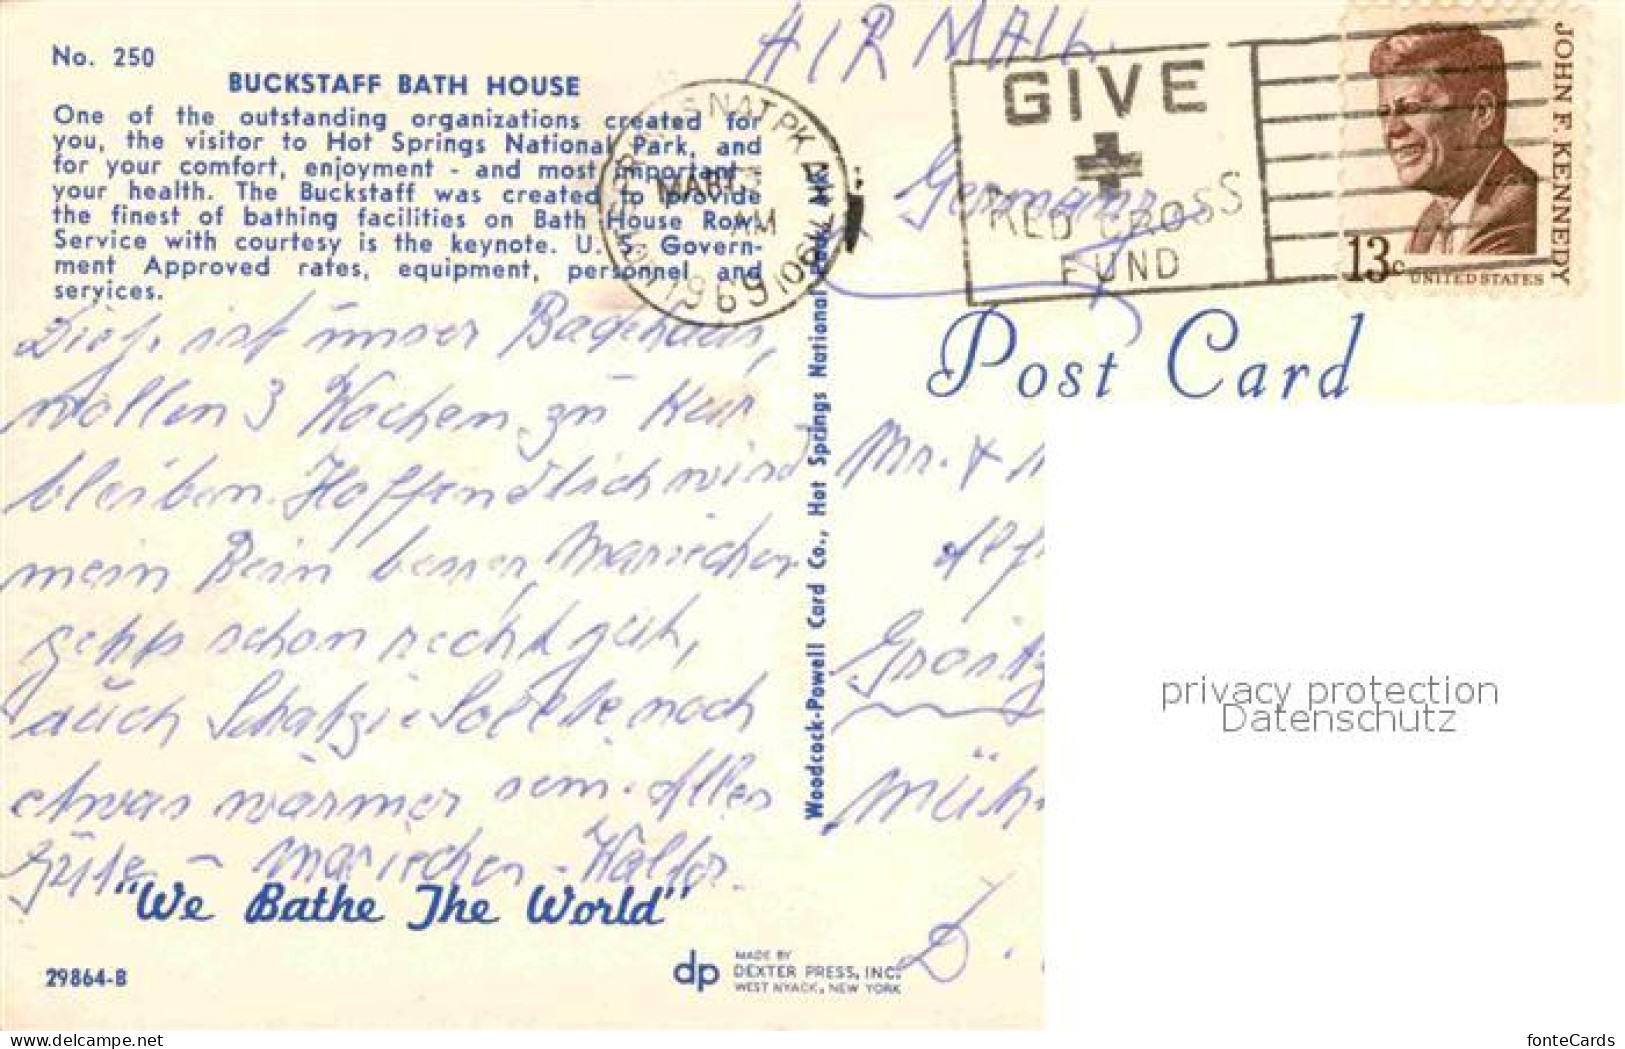 No. 250
BUCKSTAFF BATH HOUSE
One of the outstanding organizations created for
you, the visitor to Hot Springs National Park, and
for your comfort, enjoyment - and most important -
your health. The Buckstaff was created to provide
the finest of bathing facilities on Bath House Row.
Service with courtesy is the keynote. U. S. Govern-
ment Approved rates, equipment, personnel and
services.
Dieß ist unser Badehaus,
wollen 3 Wochen zu Kur
bleiben. Hoffendlich wird
mein Bein besser, Mariechen
gehts schon recht gut,
auch Schatzi. Sollte noch
etwas wärmer sein. Alles
Gute - Mariechen - Walter.
"We Bathe The World"
29864-B
dp
MADE BY
DEXTER PRESS, INC.
WEST NYACK, NEW YORK
Woodcock-Powell Card Co., Hot Springs National Park, Ark.
AIR MAIL.
NAT PK ARK
MAR
AM
1969
71901
GIVE
RED CROSS
FUND
JOHN F. KENNEDY
13c
UNITED STATES
Germany
Post Card
Mr. &
Müh
D.
privacy protection
Datenschutz
www.delcampe.net
fonteCards